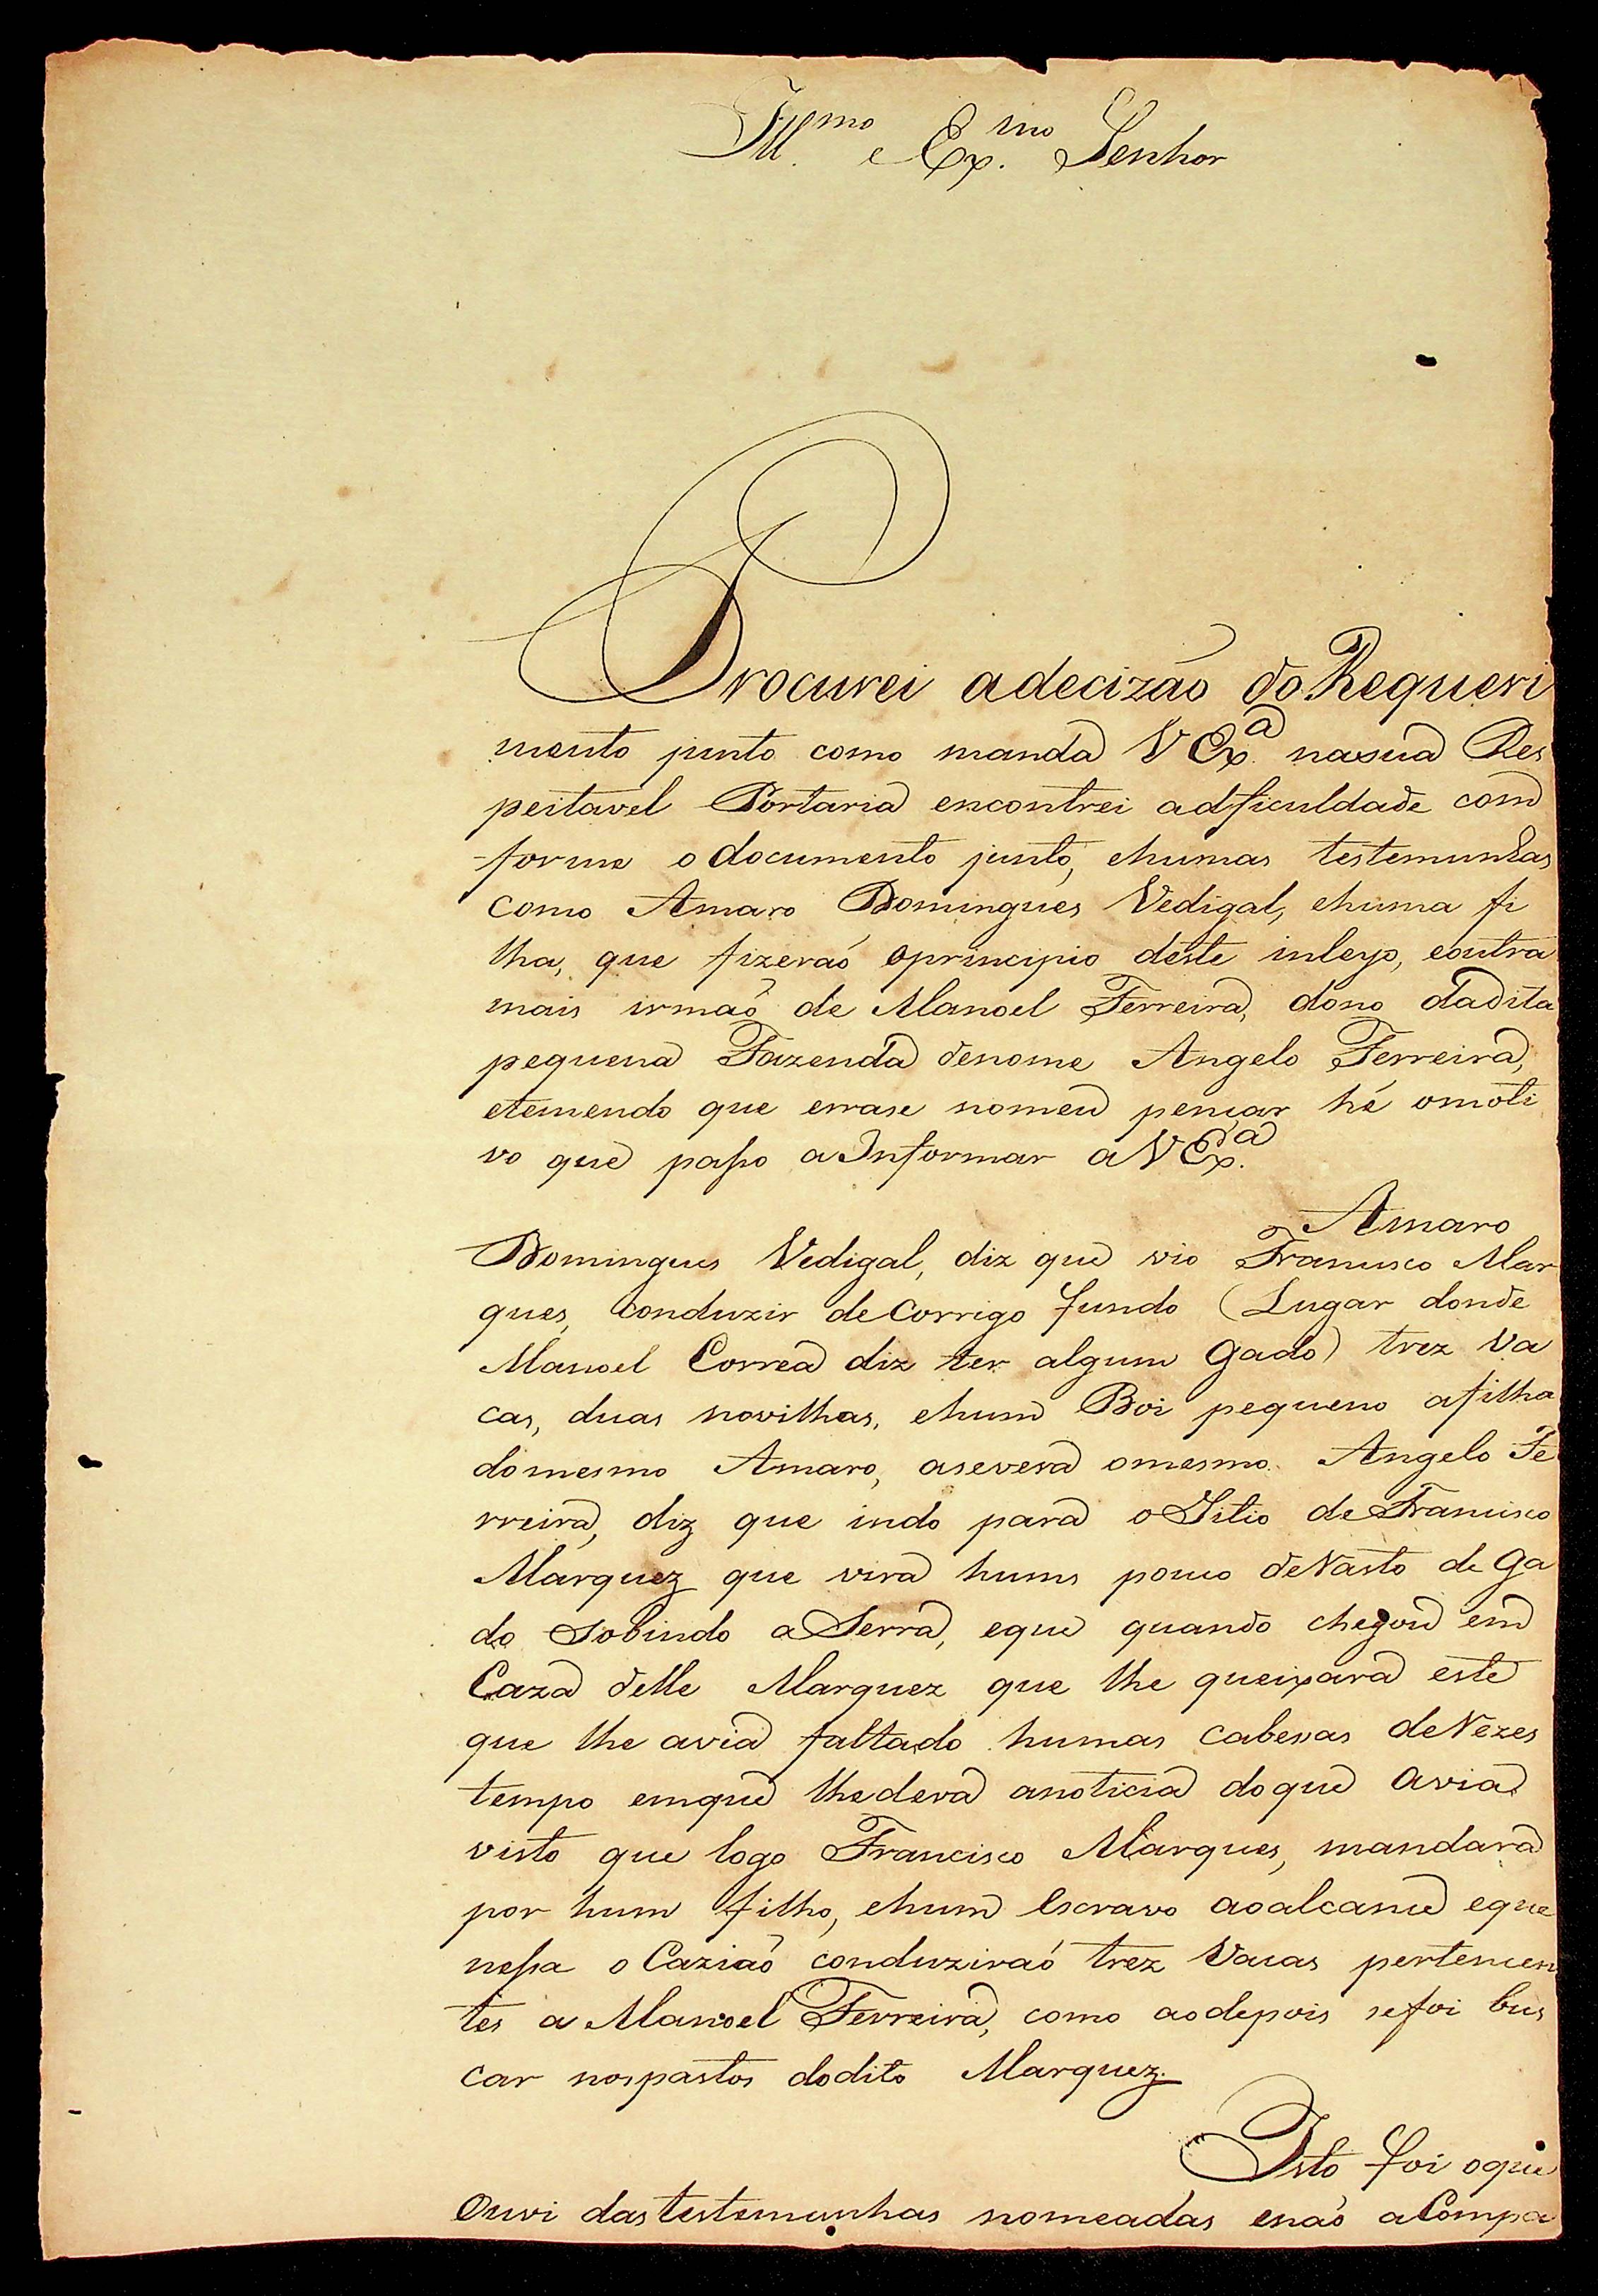 Ill.mo e Ex.mo Senhor
Procurei adecizaõ do Requeri
mento junto como manda V Ex.a nasua Res
peitavel Portaria encontrei adficuldade com
forme o documento junto, ehumas testemunhas
como Amaro Domingues Vedigal, ehuma fi
lha, que fizeraõ oprincipio deste inleyo, eoutra
mais irmaõ de Manoel Ferreira, dono dadita
pequena Fazenda denome Angelo Ferreira,
etemendo que errase nomeu pençar hé omoti
vo que paſso aInformar aV Ex.a
Amaro
Domingues Vedigal, diz que vio Francisco Mar
ques, conduzir de Corrigo fundo (Lugar donde
Manoel Correa diz ter algum Gado) trez Va
cas, duas novilhas, ehum Boi pequeno afilha
domesmo Amaro, asevera omesmo. Angelo Fe
rreira, diz que indo para oSitio de Francisco
Marquez que vira hums pouco deVasto de Ga
do Sobindo aSerra, eque quando chegou em
Caza delle Marquez que lhe queixara este
que lhe avia faltado humas cabesas deVezes
tempo emque lhedera anoticia doque avia
visto que logo Francisco Marques, mandara
por hum filho, ehum escravo aoalcance eque
neſsa oCaziaõ conduziraõ trez Vacas pertencen
tes a Manoel Ferreira, como aodepois sefoi bus
car nospastos dodito Marquez.
Isto foi oque
Ouvi dastestemunhas nomeadas enaõ aCompa